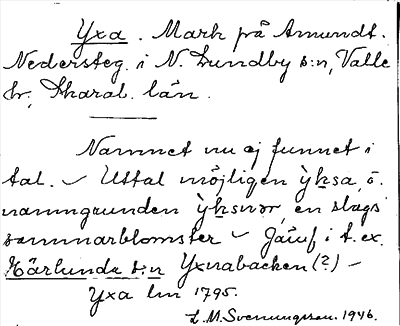 Yxa. Mark på Amundt.
Nedersteg. i N. Lundby s:n, Valle
hr, Skarab. län.
Namnet nu ej funnet i
tal. ✓ Uttal möjligen ỳksa, i
namngrunden ỳksnər, en slags
sommarblomster ✓ Jämf i t. ex.
Härlunda s:n Yxnabacken (?) –
Yxa lm 1795.
L. M. Svenungsson. 1946.